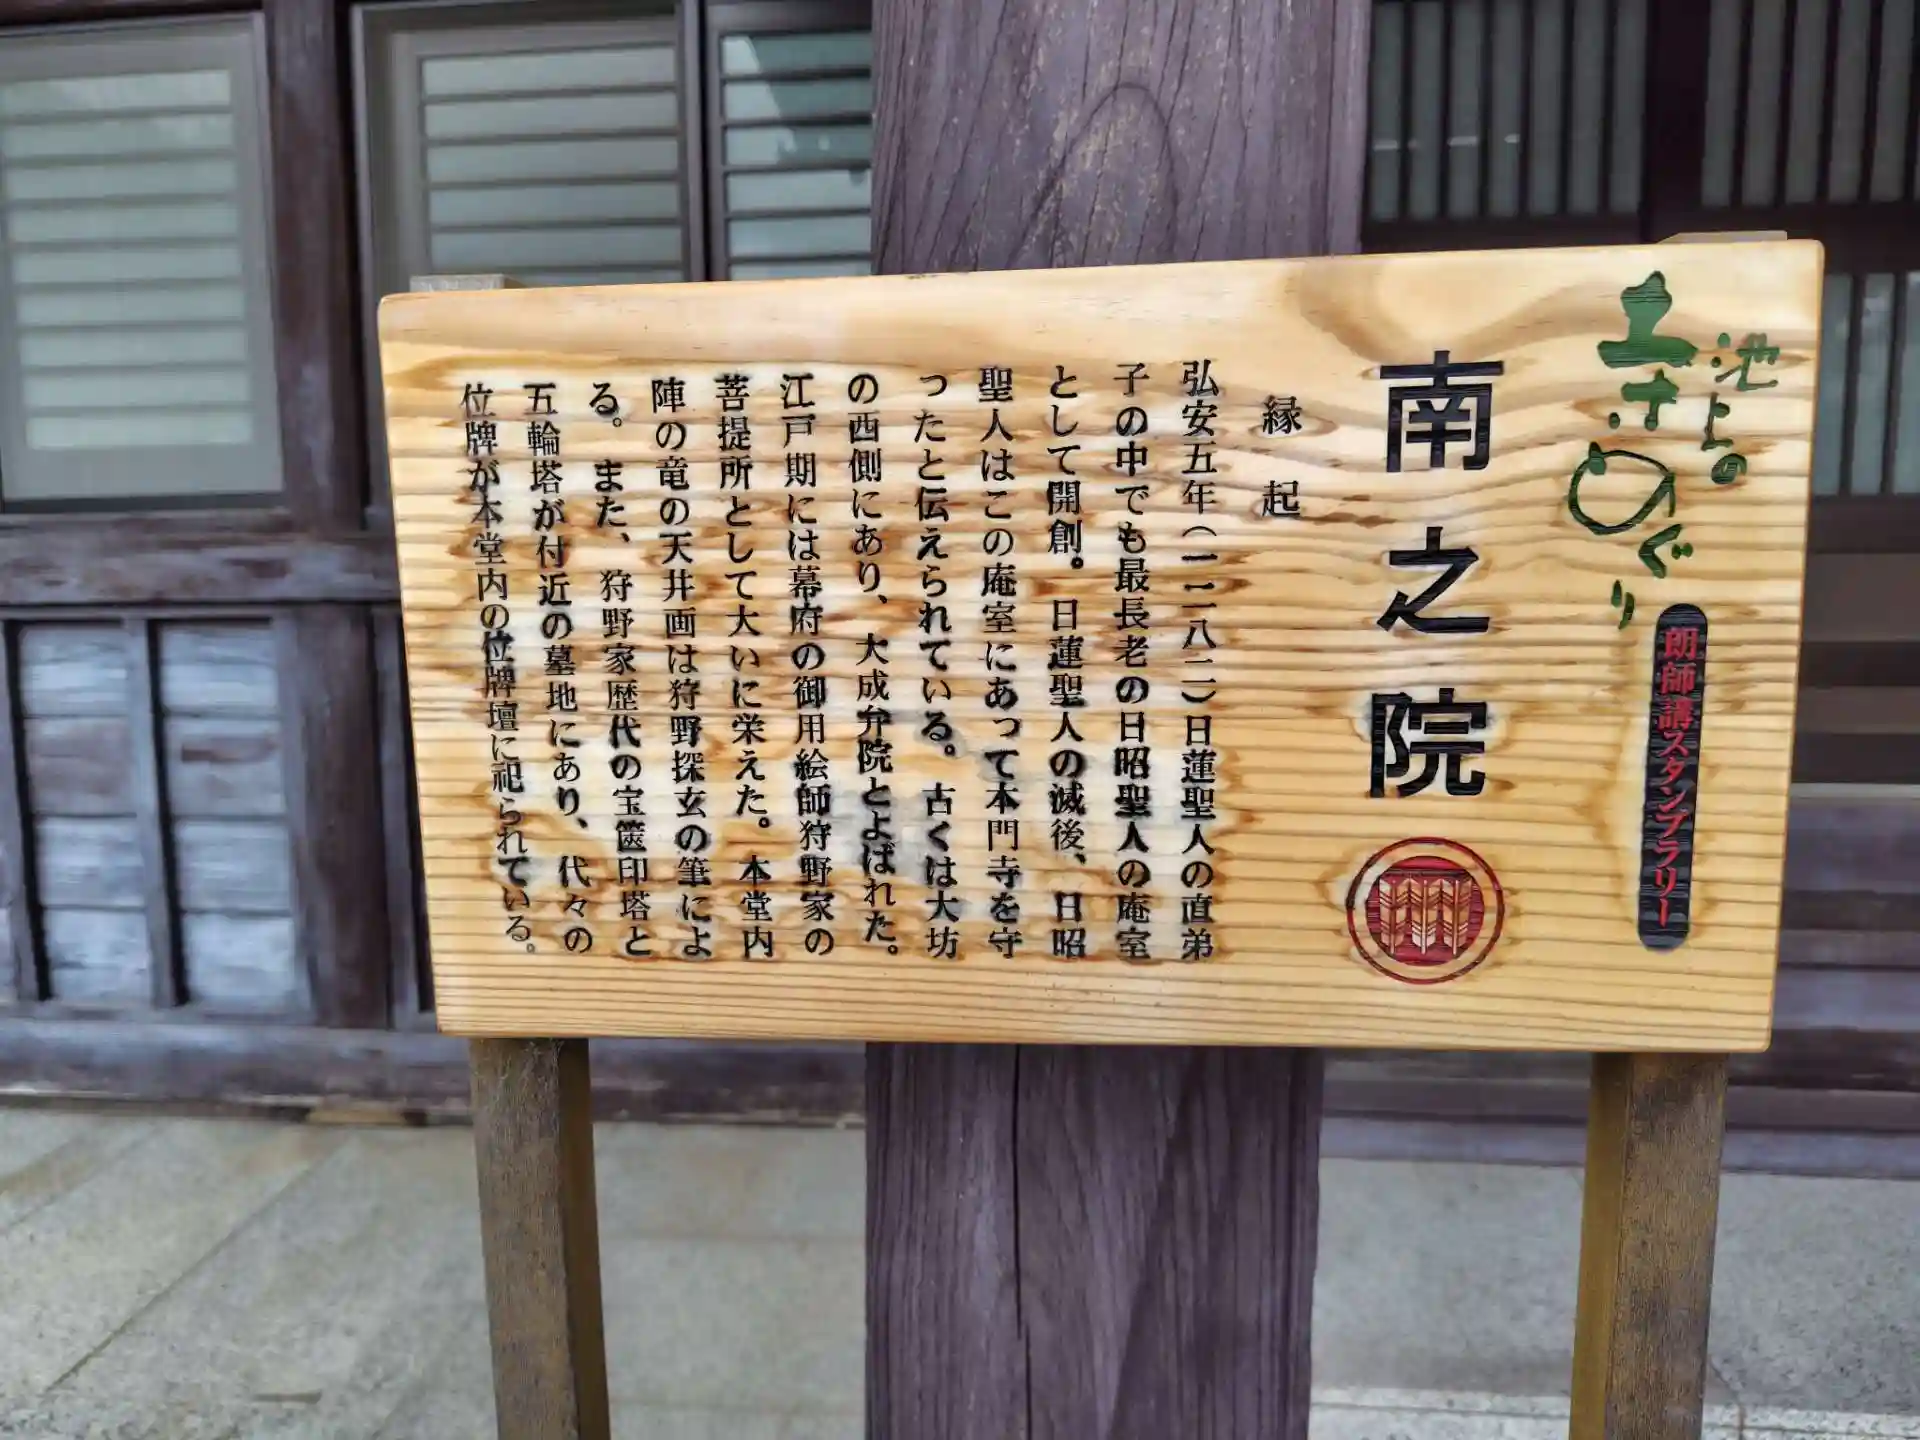 池上の
お寺めぐり
朗師講スタンプラリー
南之院
縁起
弘安五年（一二八二）日蓮聖人の直弟
子の中でも最長老の日昭聖人の庵室
として開創。日蓮聖人の滅後、日昭
聖人はこの庵室にあって本門寺を守
ったと伝えられている。古くは大坊
の西側にあり、大成弁院とよばれた。
江戸期には幕府の御用絵師狩野家の
菩提所として大いに栄えた。本堂内
陣の竜の天井画は狩野探玄の筆によ
る。また、狩野家歴代の宝篋印塔と
五輪塔が付近の墓地にあり、代々の
位牌が本堂内の位牌壇に祀られている。